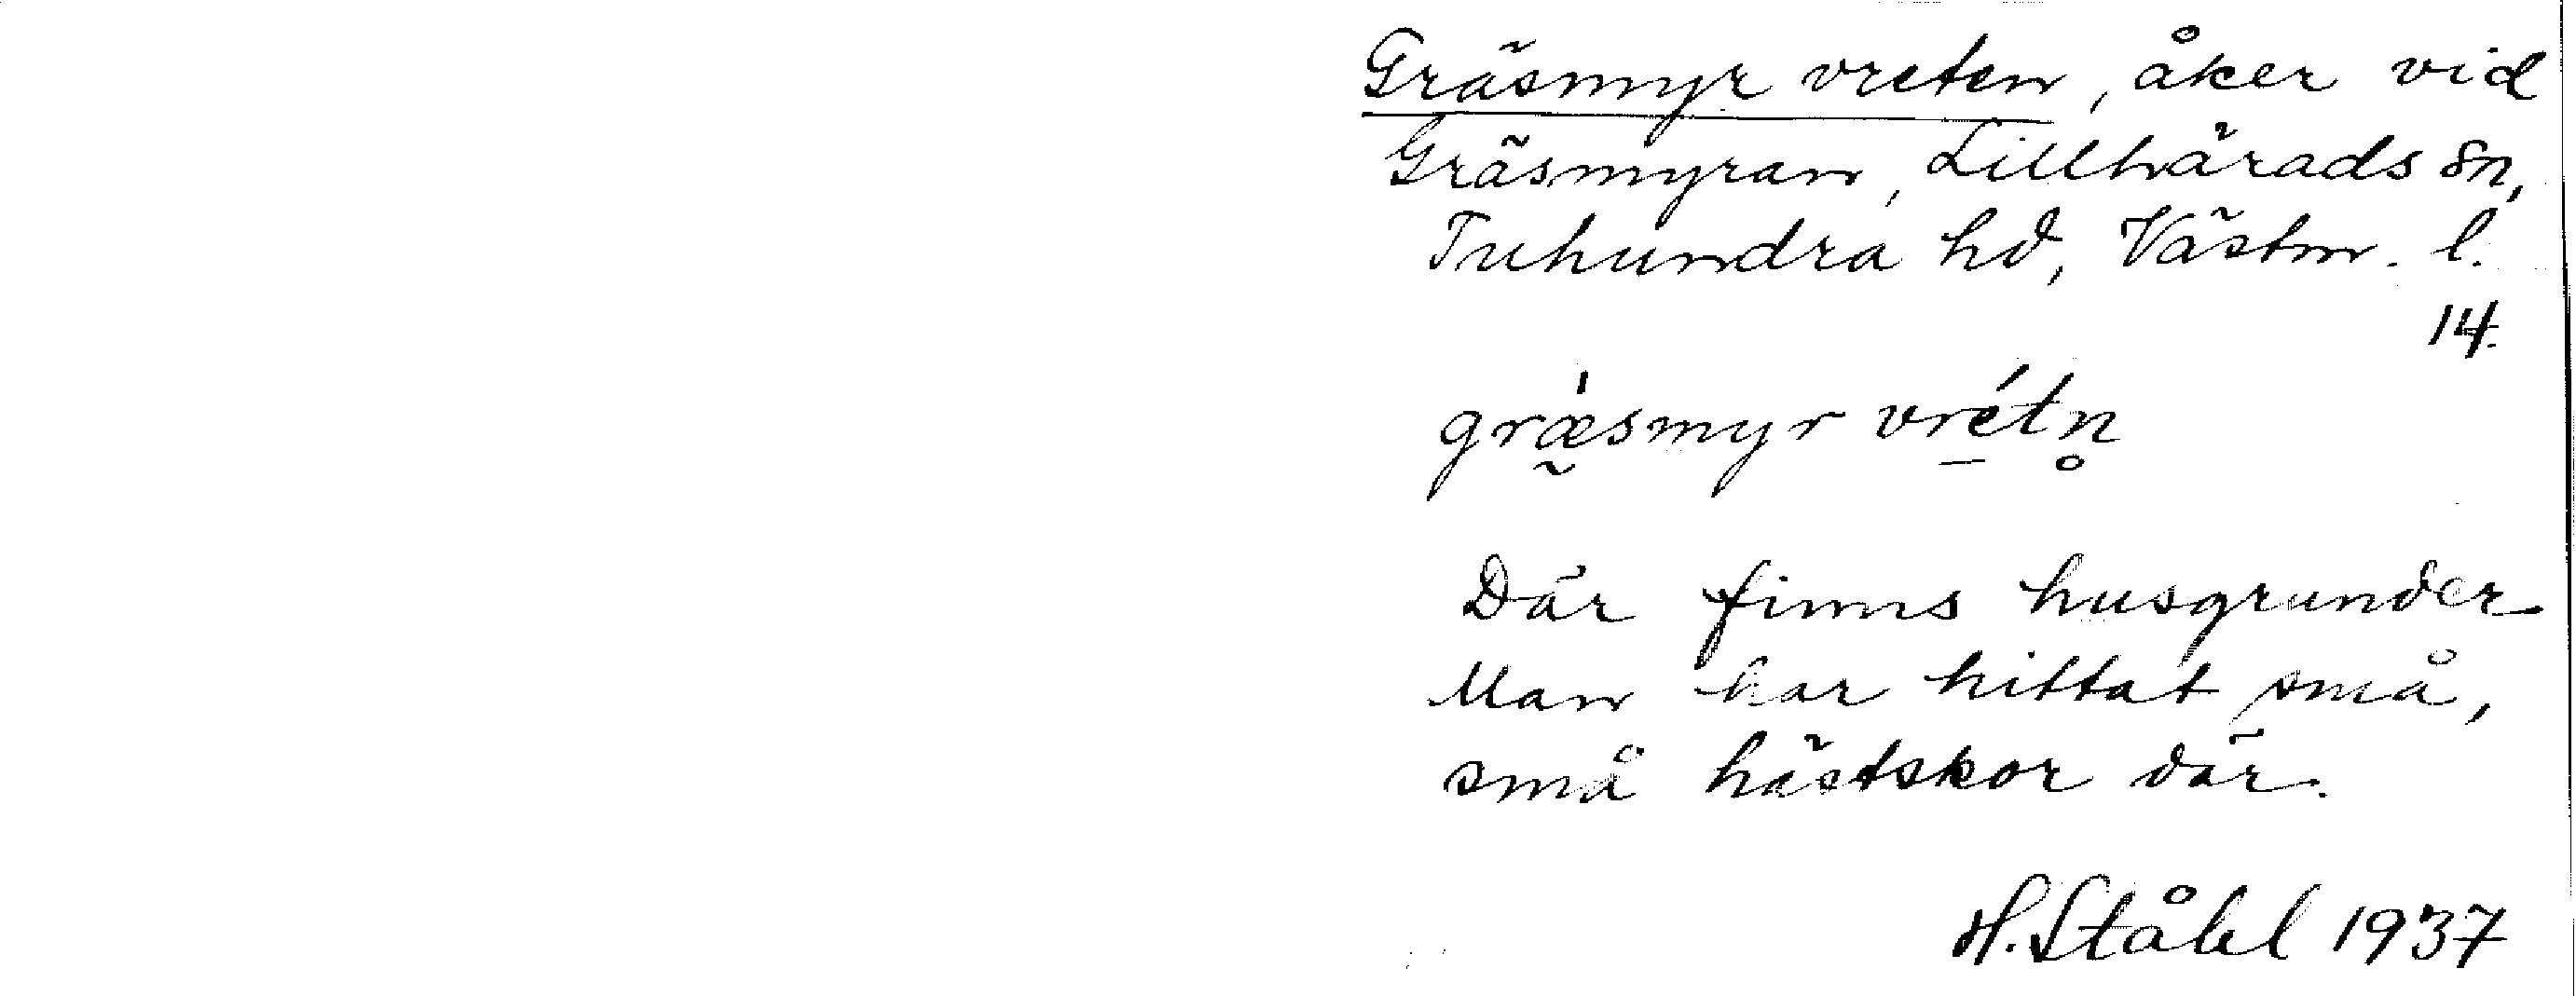 Gräsmyr vreten, åker vid
Gräsmyran, Lillhärads sn,
Tuhundra hd, Västm. l.
14.
græ̰̀smyr vré̱tn̥
Där finns husgrunder
Man har hittat små,
små hästskor där.
H. Ståhl 1937